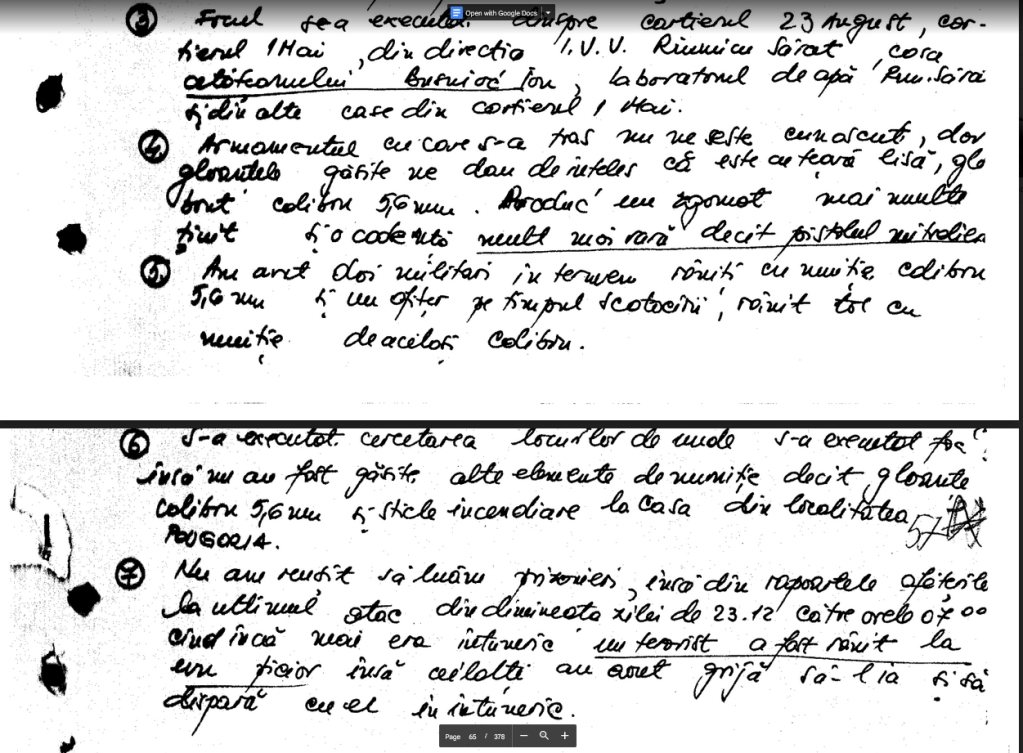 ③ Focul s-a executat dinspre cartierul 23 August, car-
Open with Google Docs
tierul 1 Mai, din direcția I.V.V. Rîmnicu Sărat, casa
cetățeanului Busuioc Ion, laboratorul de apă Rm. Sărat
și din alte case din cartierul 1 Mai.
④ Armamentul cu care s-a tras nu ne este cunoscut, dar
gloanțele găsite ne dau de înțeles că este cu țeavă lisă, glo
calibru 5,6 mm. Produc un zgomot mai multe
și o cadență mult mai rară decît pistolul mitralieră
⑤ Am avut doi militari în termen răniți cu muniție calibru
5,6 mm și un ofițer pe timpul scotocirii, rănit tot cu
muniție de același calibru.
⑥ S-a executat cercetarea locurilor de unde s-a executat foc
însă nu au fost găsite alte elemente de muniție decît gloanțe
calibru 5,6 mm și sticle incendiare la casa din localitatea
57
PODGORIA.
⑦ Nu am reușit să luăm prizonieri, însă din rapoartele
la ultimul atac din dimineața zilei de 23.12 către orele 07 00
cînd încă mai era întuneric un terorist a fost rănit la
un picior însă ceilalți au avut grijă să-l ia și să
dispară cu el în întuneric.
Page 65 / 378 − +